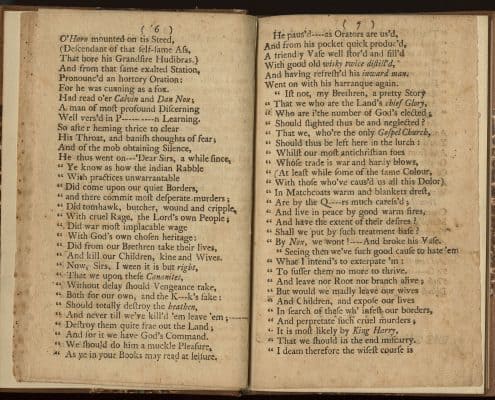 ( 6 )
O'Hara mounted on his Steed,
(Descendant of that self-same Ass,
That bore his Grandsire Hudibras.)
And from that same exalted Station,
Pronounc'd an hortory Oration:
For he was cunning as a fox.
Had read o'er Calvin and Dan Nox;
A man of most profound Discerning
Well vers'd in P----------n Learning.
So after heming thrice to clear
His Throat, and banish thoughts of fear;
And of the mob obtaining Silence,
He thus went on---'Dear Sirs, a while since,
" Ye know as how the indian Rabble
" With practices unwarrantable
" Did come upon our quiet Borders,
" and there commit most desperate murders;
" Did tomhawk, butcher, wound and cripple,
" With cruel Rage, the Lord's own People;
" Did war most implacable wage
" With God's own chosen heritage:
" Did from our Brethren take their lives,
" And kill our Children, kine and Wives.
" Now, Sirs, I ween it is but right,
" That we upon these Canaanites,
" Without delay should Vengeance take,
" Both for our own, and the K---k's sake:
" Should totally destroy the heathen,
" And never till we've kill'd 'em leave 'em;
" Destroy them quite frae out the Land;
" And for it we have God's Command.
" We should do him a muckle Pleasure,
" As ye in your Books may read at leisure.
( 7 )
He paus'd----as Orators are us'd,
And from his pocket quick produc'd,
A friendly Vase well stor'd and fill'd
With good old wisky twice distill'd,
And having refresh'd his inward man.
Went on with his harrangue again.
" Ist not, my Brethren, a pretty Story
" That we who are the Land's chief Glory,
" Who are i'the number of God's elected;
" Should slighted thus be and neglected?
" That we, who're the only Gospel Church,
" Should thus be left here in the lurch:
" Whilst our most antichristian foes
" Whose trade is war and hardy blows,
" (At least while some of the same Colour,
" With those who've caus'd us all this Dolor)
" In Matchcoats warm and blankets drest,
" Are by the Q----rs much caress'd;
" And live in peace by good warm fires,
" And have the extent of their desires?
" Shall we put by such treatment base?
" By Nox, we wont!---And broke his Vase.
" Seeing then we've such good cause to hate 'em
" What I intend's to exterpate 'm:
" To suffer them no more to thrive.
" And leave nor Root nor branch alive;
" But would we madly leave our wives
" And Children, and expose our lives
" In search of these wh' infest our borders,
" And perpetrate such cruel murders;
" It is most likely by King Harry,
" That we should in the end miscarry.
" I deam therefore the wisest course is